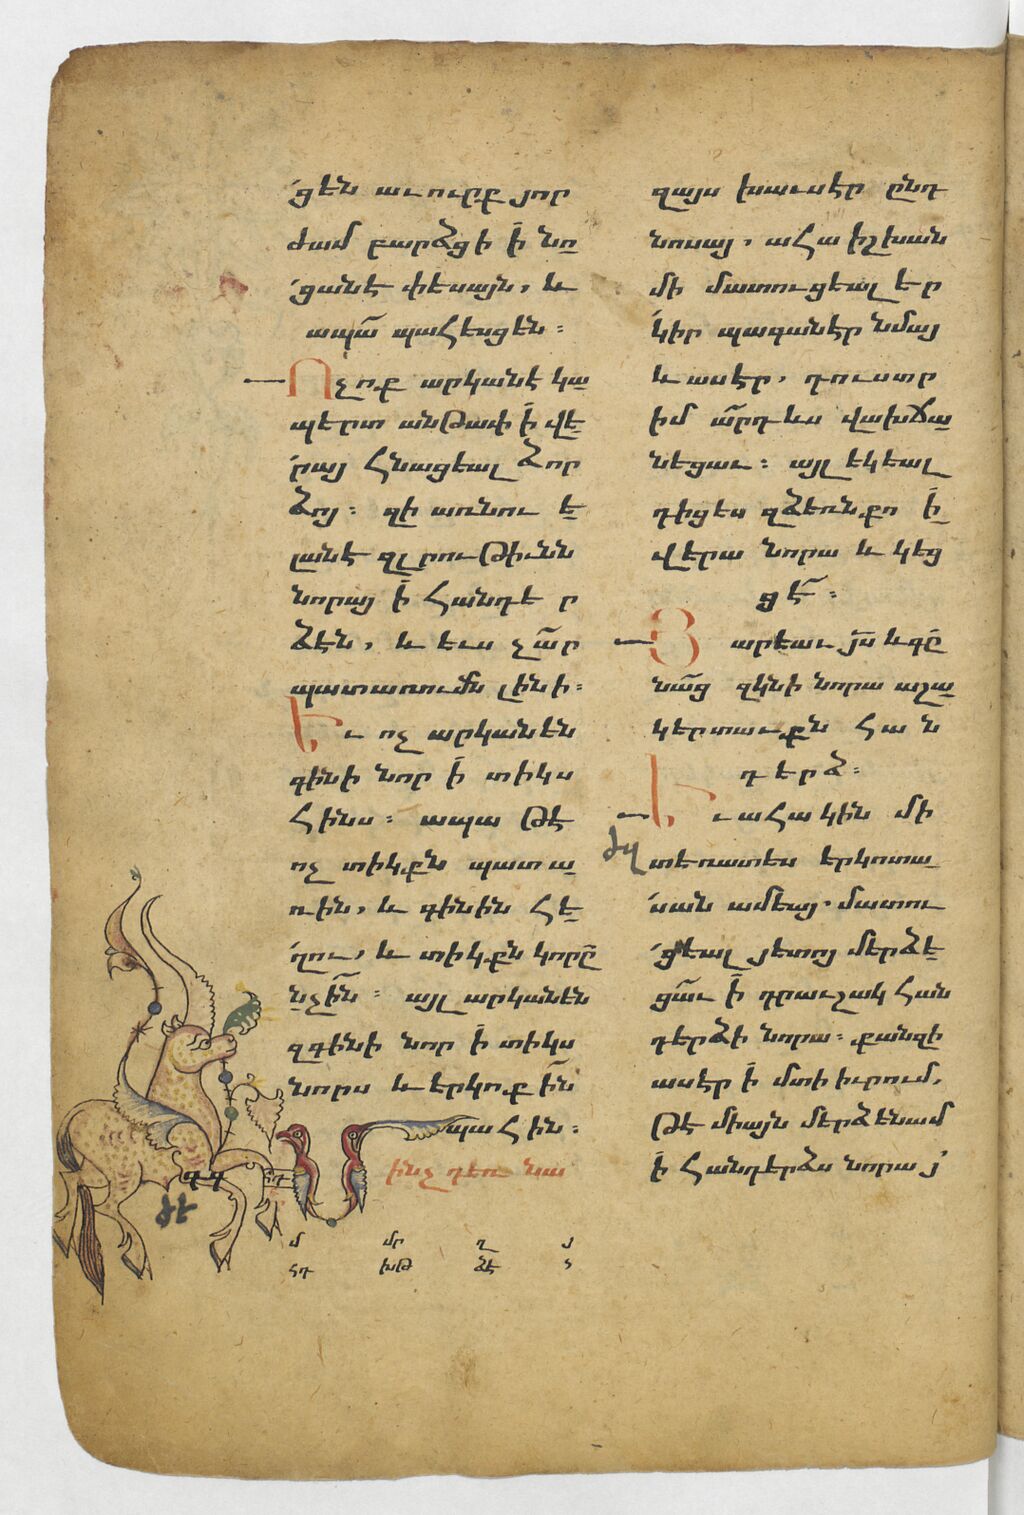 ցեն աւուրք յոր
ժամ բարձցի ի նո
ցանէ փեսայն, և
ապա պահեսցեն։
Ոչ ոք արկանէ կա
պերտ անթափ ի վե
րայ հնացեալ ձոր
ձոյ։ զի առնու ե
լանէ զլրութիւնն
նորայ ի հանդե ր
ձէն, և ևս չար
պատառումն լինի։
Եւ ոչ արկանեն
գինի նոր ի տիկս
հինս։ ապա թէ
ոչ տիկքն պատա
ռին, և գինին հե
ղու, և տիկքն կորը
նչին։ այլ արկանեն
զգինի նոր ի տիկս
նորս և երկոքին
պահին։
ինչ դեռ նա
մ մր ղ յ
հդ խթ ձէ
զայս խաւսէր ընդ
նոսայ, ահա իշխան
մի մատուցեալ եր
կիր պագանէր նմայ
և ասէր, դուստր
իմ արդ ևս վախճա
նեցաւ։ այլ եկեալ
դիցես զձեռն քո ի
վերա նորա և կեց
ցէ։
Յարեաւ յս և գը
նաց զկնի նորա աշա
կերտաւքն հա ն
դ ե ր ձ։
Եւ ահա կին մի
տեռատես երկոտա
սան ամեայ. մատու
ցեալ յետոյ մերձե
ցաւ ի դրաւշակ հան
դերձի նորա։ քանզի
ասէր ի մտի իւրում,
թէ միայն մերձենամ
ի հանդերձս նորա յ